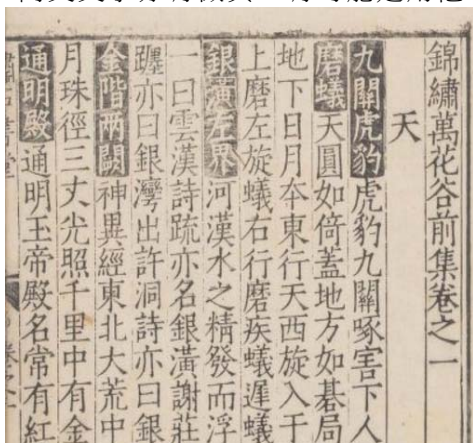 錦繡萬花谷前集卷之一
天
九關虎豹虎豹九關啄害下人
磨蟻天圓如倚蓋地方如棊局
地下日月夲東行天西旋入于
上磨左旋蟻右行磨疾蟻遲蟻
銀潢左界河漢水之精發而浮
一曰雲漢詩疏亦名銀潢謝莊
躔亦曰銀灣出許洞詩亦曰銀
金階兩闕神異經東北大荒中
月珠徑三丈光照千里中有金
通明殿通明玉帝殿名常有紅